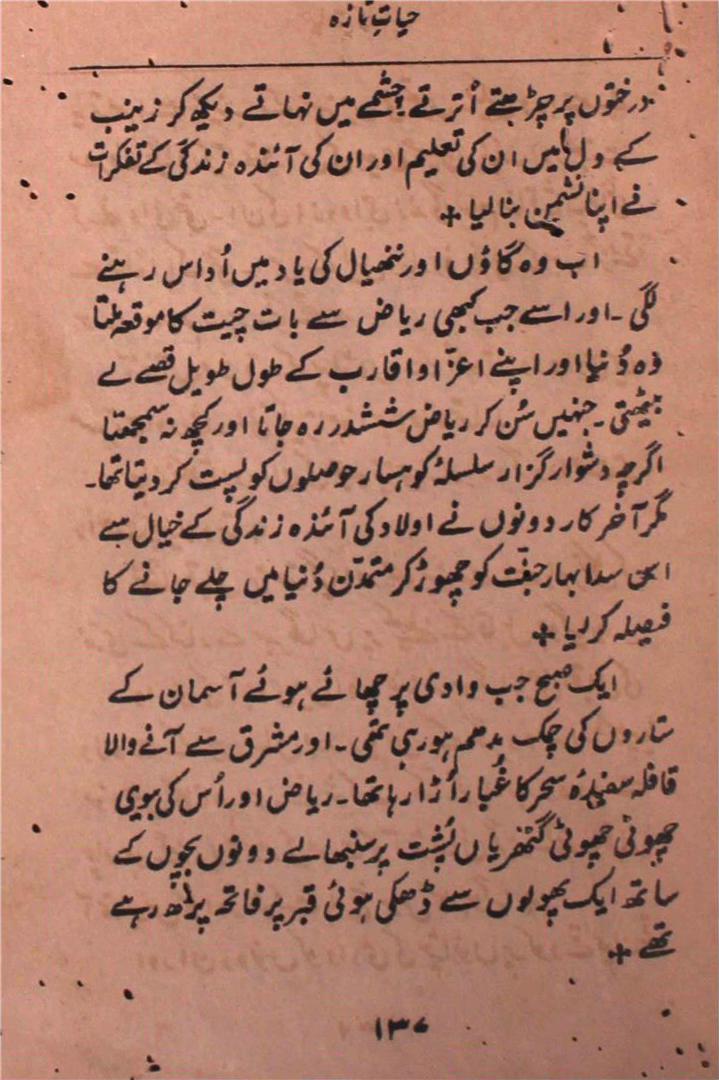 حیاتِ تازہ
درختوں پر چڑھتے اُترتے چشمے میں نہاتے دیکھ کر زینب
کے دل میں ان کی تعلیم اور ان کی آئندہ زندگی کے تفکرات
نے اپنا نشیمن بنا لیا +
اب وہ گاؤں اور ننھیال کی یاد میں اُداس رہنے
لگی ۔ اور اسے جب کبھی ریاض سے بات چیت کا موقعہ ملتا
وہ دُنیا اور اپنے اعزّا و اقارب کے طول طویل قصّے لے
بیٹھتی ۔ جنہیں سُن کر ریاض ششدر رہ جاتا اور کچھ نہ سمجھتا
اگرچہ دشوار گزار سلسلۂ کوہسار حوصلوں کو پست کر دیتا تھا۔
مگر آخر کار دونوں نے اولاد کی آئندہ زندگی کے خیال سے
اس سدا بہار جنّت کو چھوڑ کر متمدّن دُنیا میں چلے جانے کا
فیصلہ کر لیا +
ایک صبح جب وادی پر چھائے ہوئے آسمان کے
ستاروں کی چمک مدھم ہو رہی تھی ۔ اور مشرق سے آنے والا
قافلہ سفیدۂ سحر کا غُبار اُڑا رہا تھا۔ ریاض اور اُس کی بیوی
چھوٹی چھوٹی گٹھڑیاں پُشت پر سنبھالے دونوں بچّوں کے
ساتھ ایک پھولوں سے ڈھکی ہوئی قبر پر فاتحہ پڑھ رہے
تھے +
۱۳۷